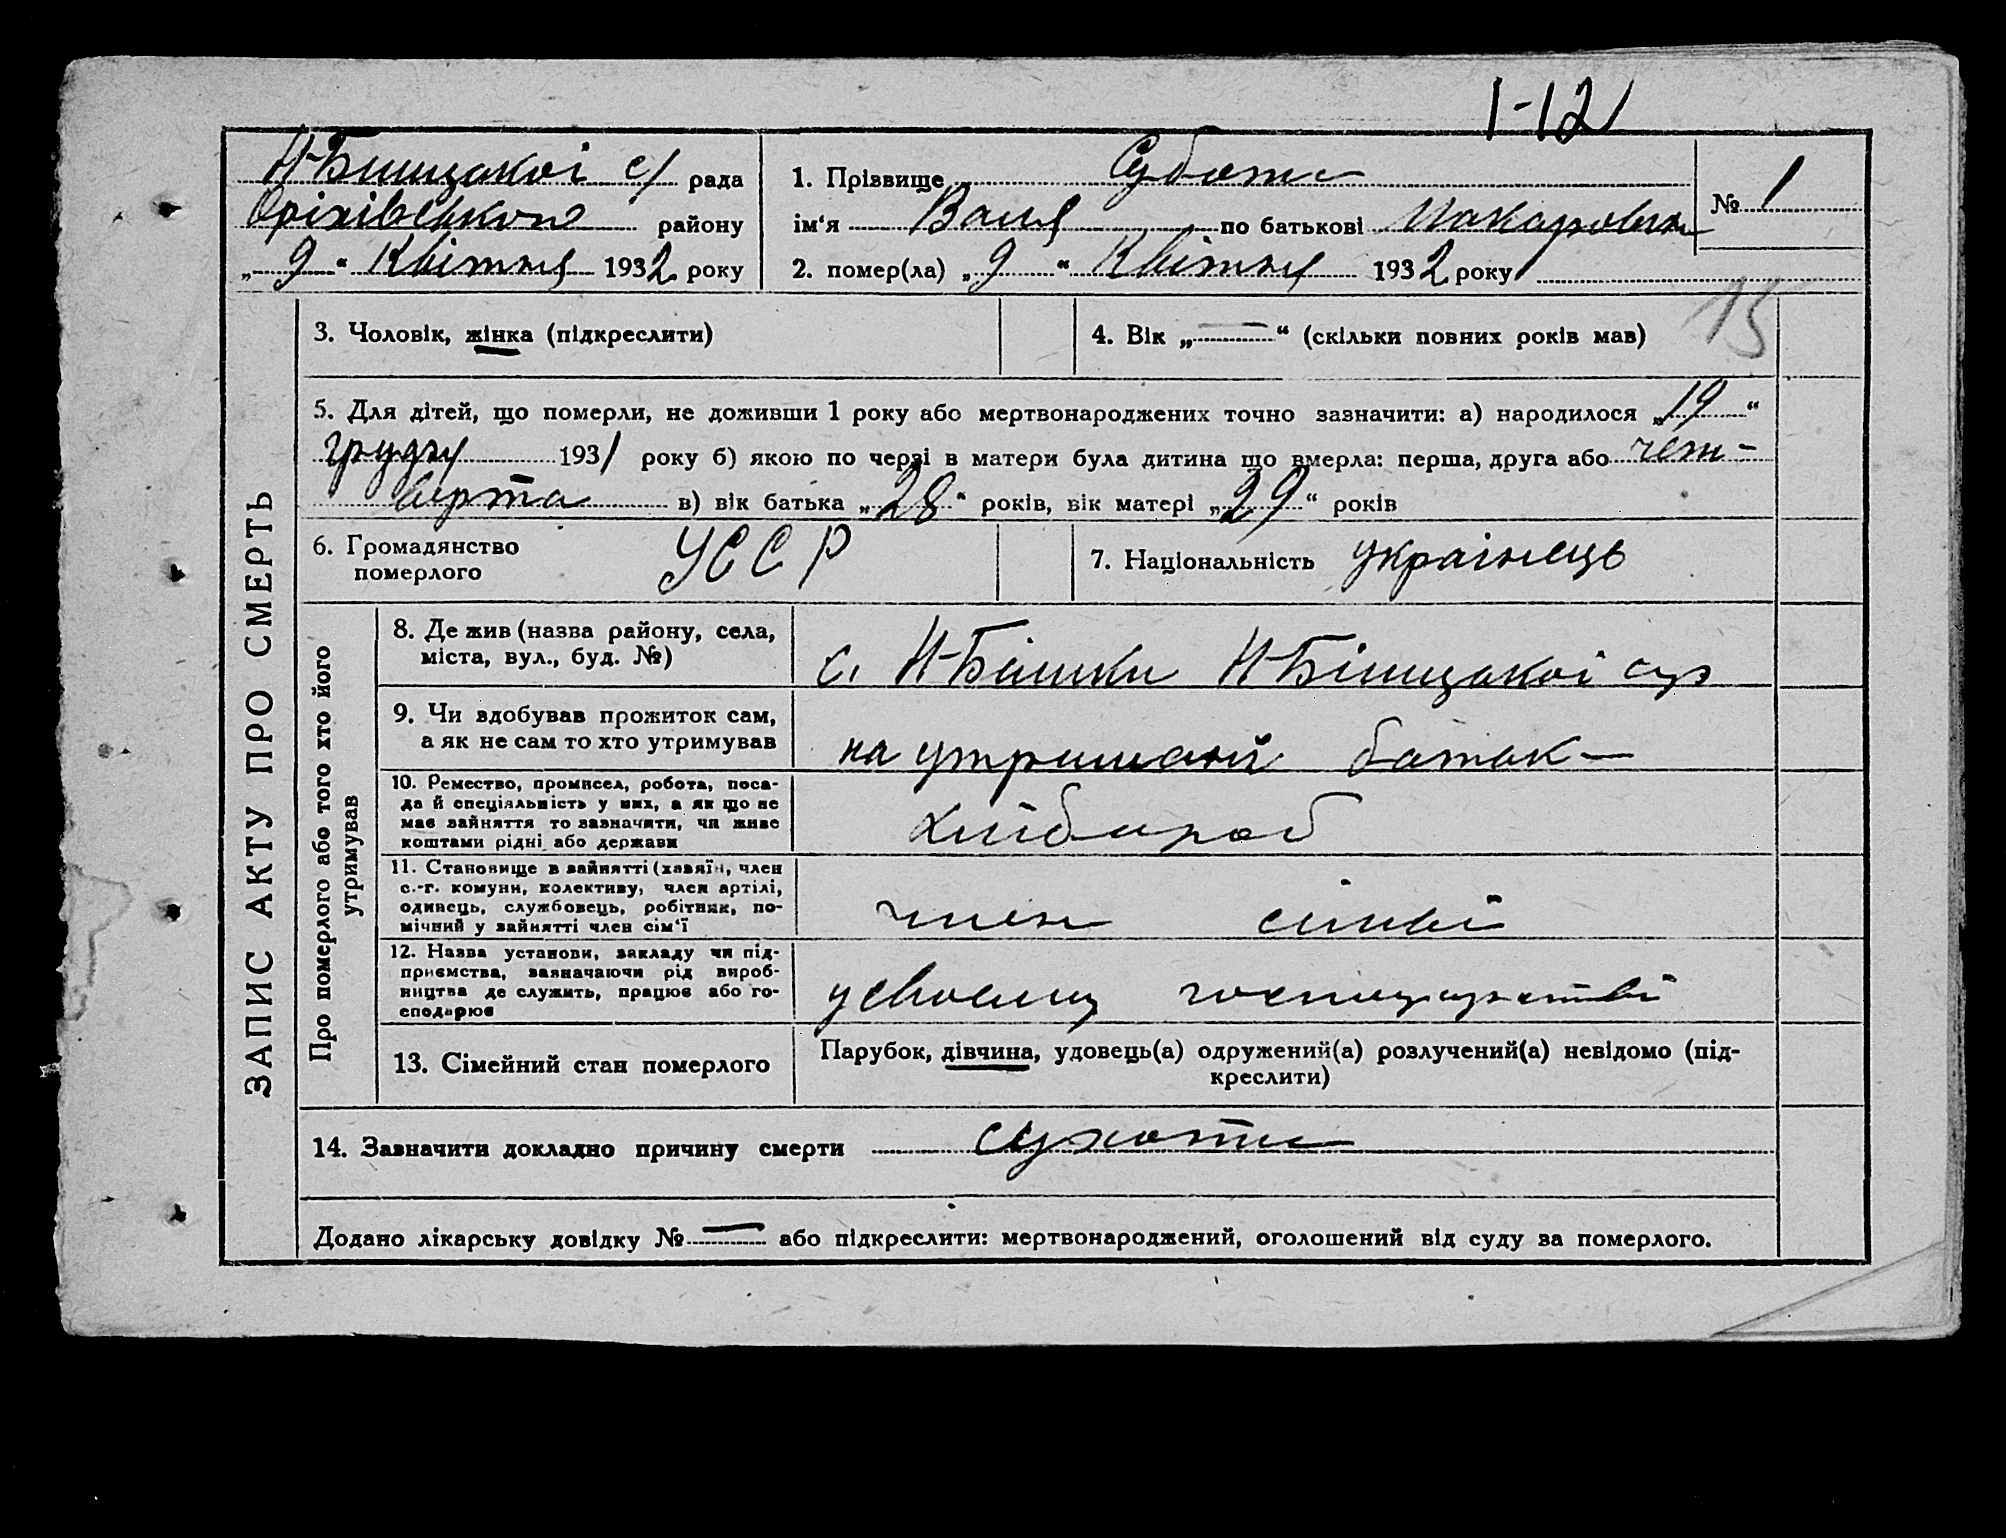 1-12
Н-Білицької с/ рада
Оріхівського району
„ 9 “ Квітня 1932 року
1. Прізвище Субота
ім‘я Валя по батькові Макаровна
№ 1
2. помер(ла) „ 9 “ Квітня 1932 року
15
3. Чоловік, жінка (підкреслити)
4. Вік „ — “ (скільки повних років мав)
5. Для дітей, що померли, не доживши 1 року або мертвонароджених точно зазначити: а) народилося „ 19 “
грудня 1931 року б) якою по черзі в матери була дитина що вмерла: перша, друга або чет-
верта в) вік батька „ 28 “ років, вік матері „ 29 “ років
6. Громадянство
померлого
УССР
7. Національність українець
ЗАПИС АКТУ ПРО СМЕРТЬ
Про померлого або того хто його
утримував
8. Де жив (назва району, села,
міста, вул., буд. №)
с. Н-Білики Н-Білицької с/р
9. Чи здобував прожиток сам,
а як не сам то хто утримував
на утриманй батьк-
10. Ремество, промисел, робота, поса-
да й спеціяльність у них, а як що не
має зайняття то зазначити, чи живе
коштами рідні або держави
хлібороб
11. Становище в зайнятті (хазяїн, член
с.-г. комуни, колективу, член артілі,
одинець, службовець, робітник, по-
мічний у зайнятті член сім‘ї
член сімї
12. Назва установи, закладу чи під-
приємства, зазначаючи рід вироб-
ництва де служить, працює або го-
сподарює
у своєму господарстві
13. Сімейний стан померлого
Парубок, дівчина, удовець(а) одружений(а) розлучений(а) невідомо (під-
креслити)
14. Зазначити докладно причину смерти сухота
Додано лікарську довідку № — або підкреслити: мертвонароджений, оголошений від суду за померлого.